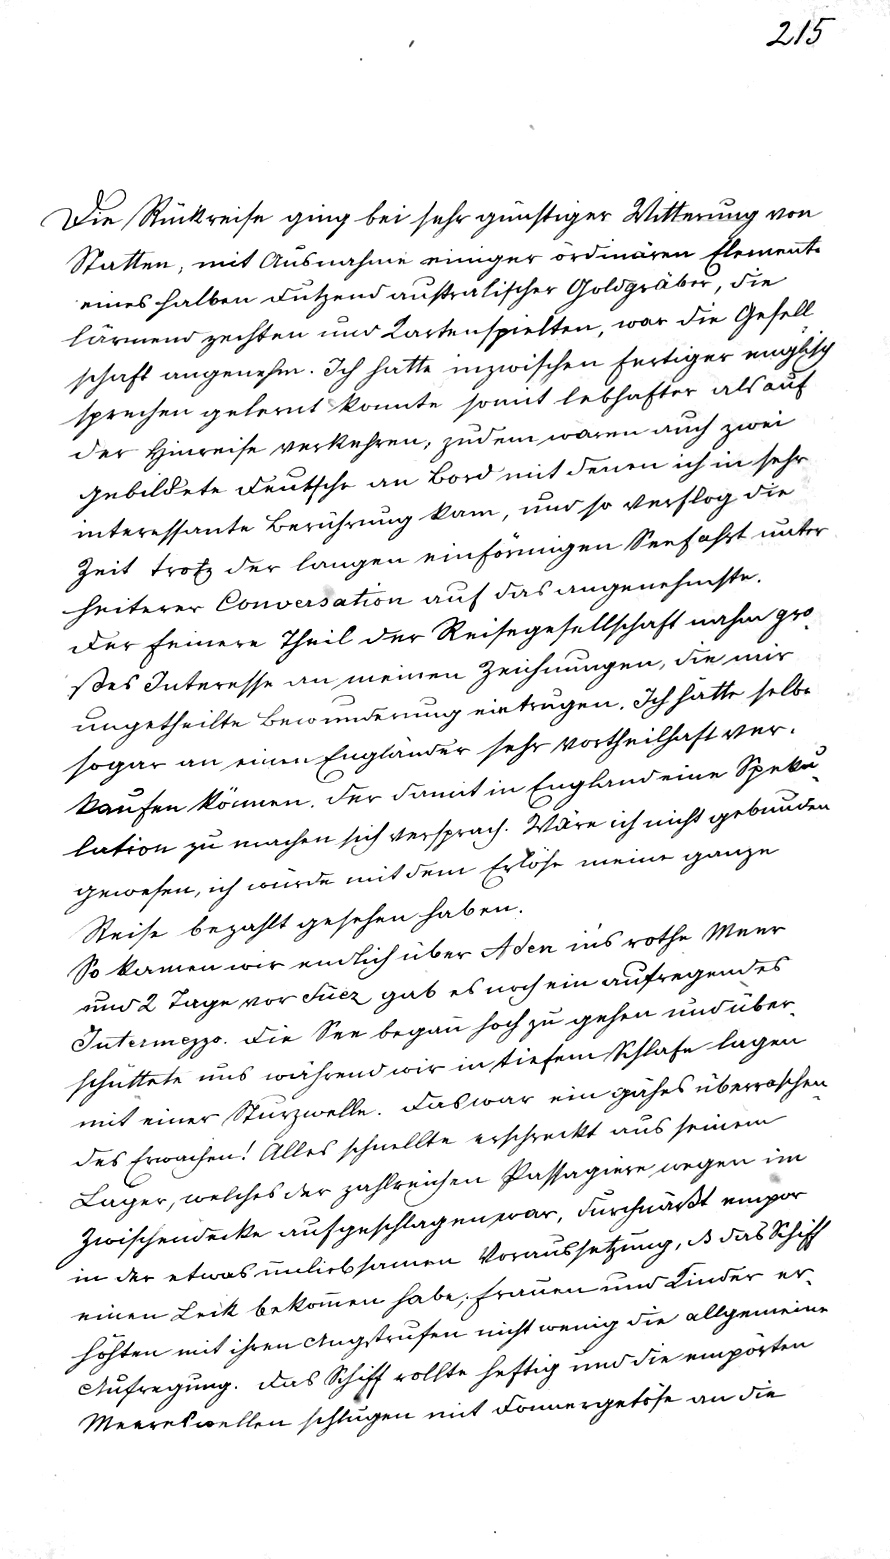 215
Die Rückreise ging bei sehr günstiger Witterung von
Statten, mit Ausnahme einiger ordinären Elemente
eines halben Dutzend australischer Goldgräber, die
lärmend zechten und Karten spielten, war die Gesell
schaft angenehm. Ich hatte inzwischen fertiger englisch
sprechen gelernt konnte somit lebhafter als auf
der Hinreise verkehren, zudem waren auch zwei
gebildete Deutsche an Bord mit denen ich in sehr
interessante Berührung kam, und so verflog die
Zeit trotz der langen einförmigen Seefahrt unter
heiterer Conversation auf das angenehmste.
Der feinere Theil der Reisegesellschaft nahm gro¬
ßes Interesse an meinen Zeichnungen, die mir
ungetheilte Bewunderung eintrugen. Ich hätte selbe
sogar an einen Engländer sehr vortheilhaft ver¬
kaufen können. der damit in England eine Speku¬
lation zu machen sich versprach. Wäre ich nicht gebunden
gewesen, ich würde mit dem Erlöse meine ganze
Reise bezahlt gesehen haben.
So kamen wir endlich über Aden in's rothe Meer
und 2 Tage vor Suez gab es noch ein aufregendes
Intermezzo. Die See began̄ hoch zu gehen und über¬
schüttete uns während wir in tiefem Schlafe lagen
mit einer Sturzwelle. Das war ein gähes überraschen¬
des Erwachen! Alles schnellte erschreckt aus seinem
Lager, welches der zahlreichen Passagiere wegen im
Zwischendecke aufgeschlagen war, durchnäßt empor
in der etwas unliebsamen Voraussetzung, das Schiff
einen Leik bekom̄en habe; Frauen und Kinder er¬
höhten mit ihren Angstrufen nicht wenig die allgemeine
Aufregung. Das Schiff rollte heftig und die empörten
Meereswellen schlugen mit Donnergetöse an die